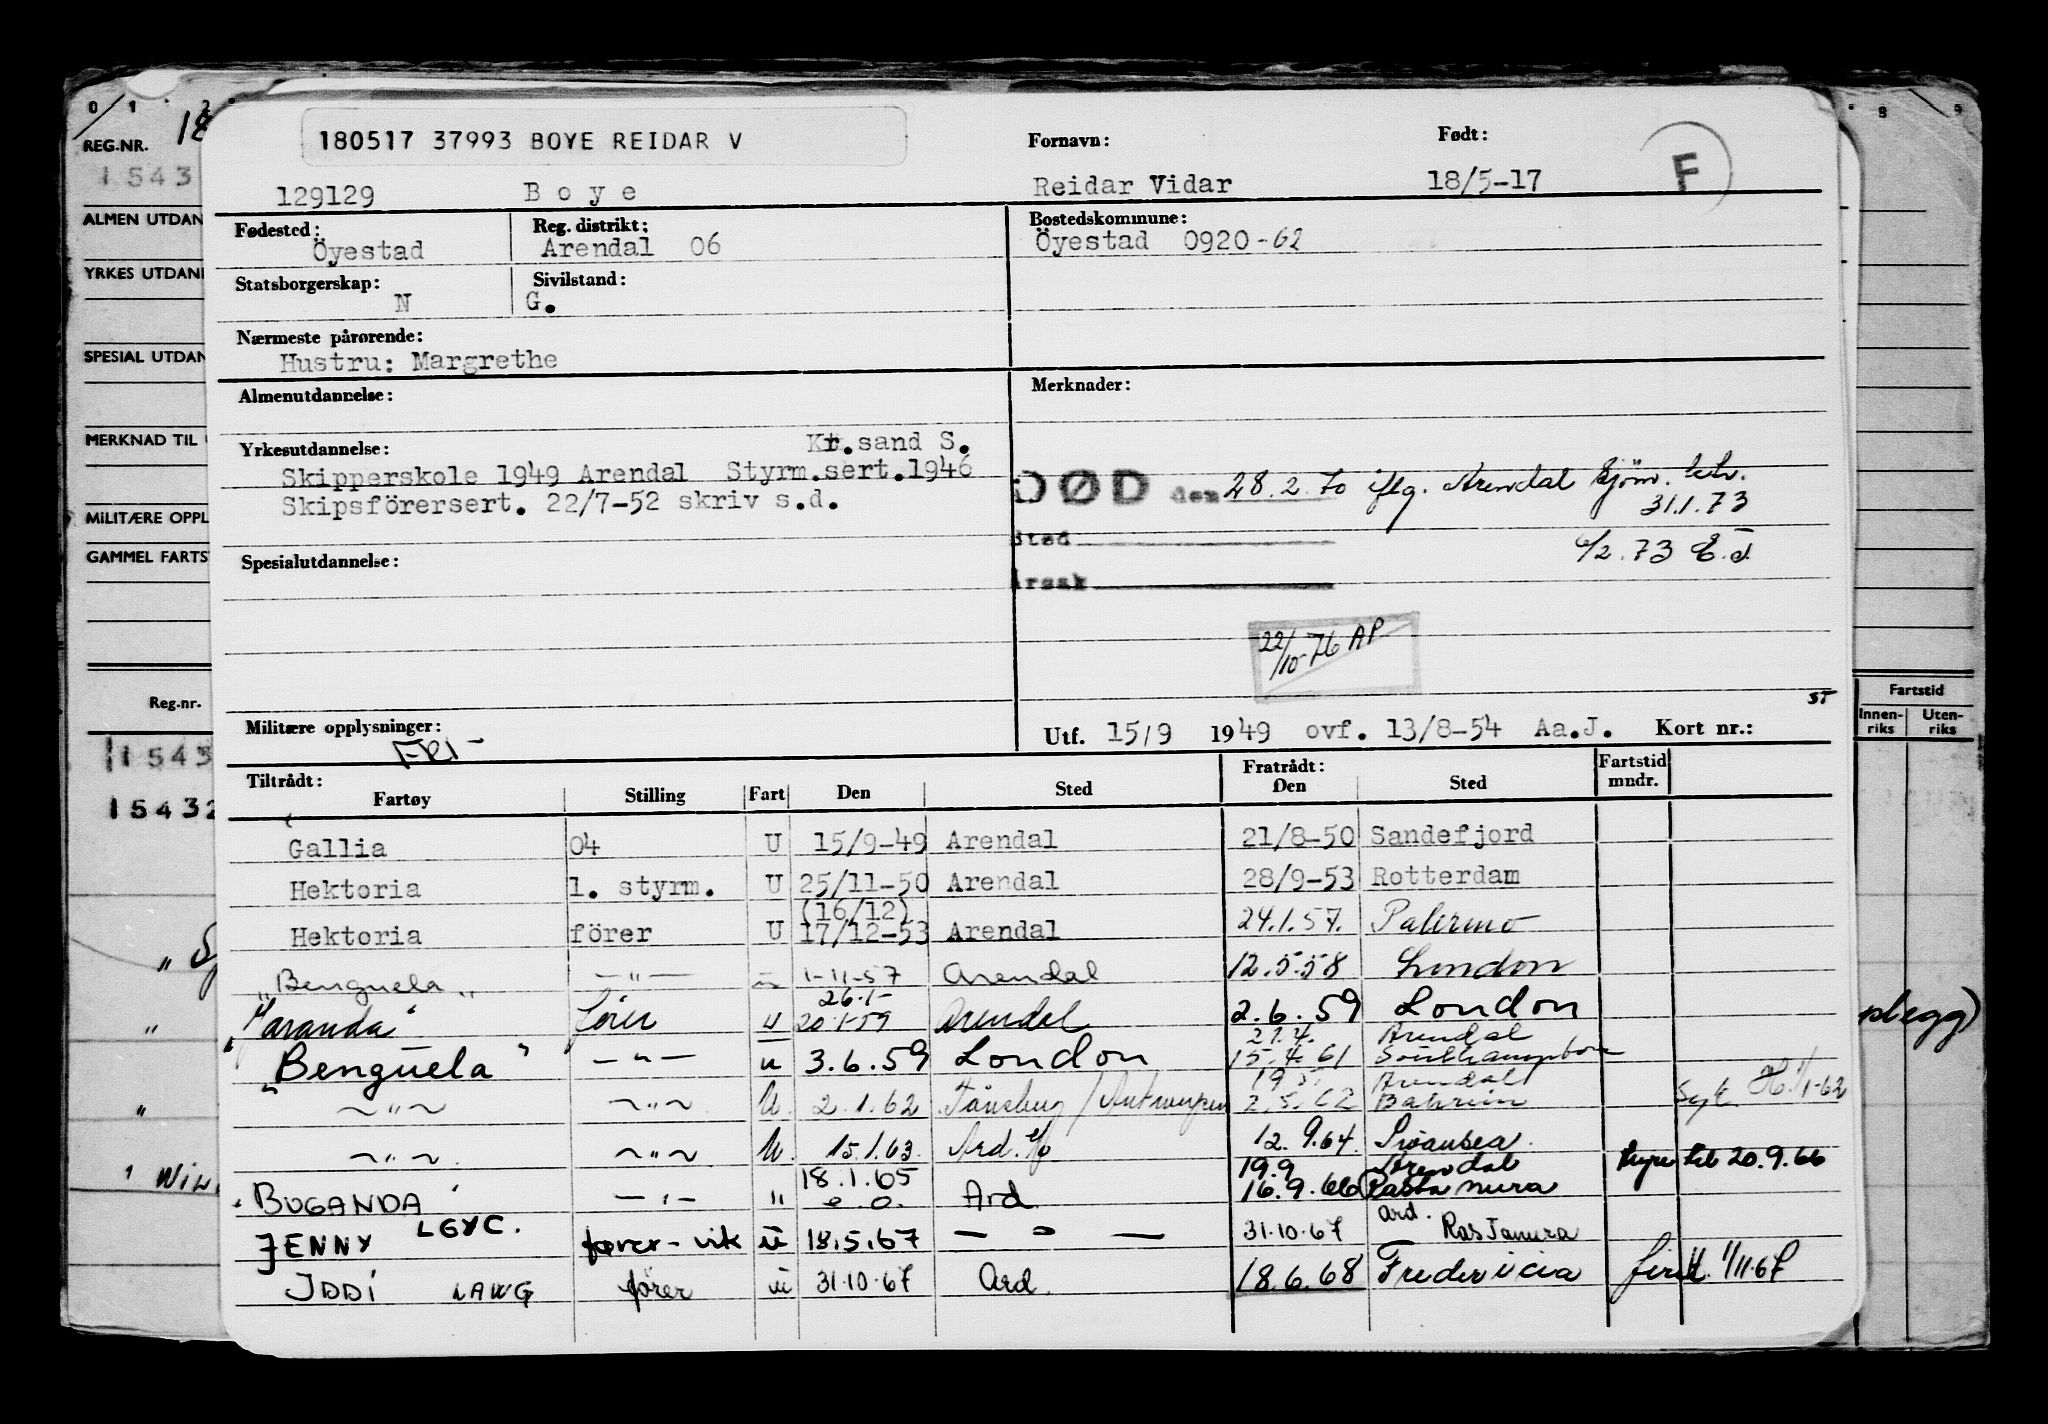 0 1 2 8 9
REG.NR.
1543
ALMEN UTDAN
YRKES UTDAN
SPESIAL UTDAN
MERKNAD TIL
MILITÆRE OPPL
GAMMEL FARTS
Reg.nr.
1543
15432
Fartstid
Innen-riks Uten-riks
180517 37993 BOYE REIDAR V
Fornavn: Født:
129129 Boye Reidar Vidar 18/5-17 F
Fødested: Reg. distrikt: Bostedskommune:
Öyestad Arendal 06 Öyestad 0920-62
Statsborgerskap: Sivilstand:
N G.
Nærmeste pårørende:
Hustru: Margrethe
Almenutdannelse: Merknader:
Yrkesutdannelse: Kr.sand S.
Skipperskole 1949 Arendal Styrm.sert.1946
Skipsförersert. 22/7-52 skriv s.d.
DØD den 28.2.70 iflg. Arendal
31.1.73
Sted
6/2.73
Årsak
Spesialutdannelse:
22/10-76 AP
ST
Militære opplysninger:
FRI
Utf. 15/9 1949 ovf. 13/8-54 Aa.J. Kort nr.:
Tiltrådt: Fratrådt: Fartstid mndr.
Fartøy Stilling Fart Den Sted Den Sted
Gallia 04 U 15/9-49 Arendal 21/8-50 Sandefjord
Hektoria 1. styrm. U 25/11-50 Arendal 28/9-53 Rotterdam
(16/12)
Hektoria förer U 17/12-53 Arendal 24.1.57. Palermo
"Benguela" —"— 1-11-57 Arendal 12.5.58 London
26.1-
förer u 20.1-59 Arendal 2.6.59 London
27.4. Arendal
"Benguela" —"— u 3.6.59 London 15.4.61 Southampton
19.5. Arendal
~"~ ~"~ U. 2.1.62 Tönsberg / Antwerpen 2.5.62 Bahrein
~"~ ~"~ U. 15.1.63 Ard. 12.9.64 Swansea
18.1.65 19.9 Arendal hyre til 20.9.66
"BUGANDA" —"— " e.o. Ard 16.9.66
JENNY LGYC. fører-vik ü 18.5.67 — " — 31.10.67 Ard. Ras Tanura
JDDI LAWG fører ü 31.10.67 Ard. 18.6.68 Fredericia 1/11.67